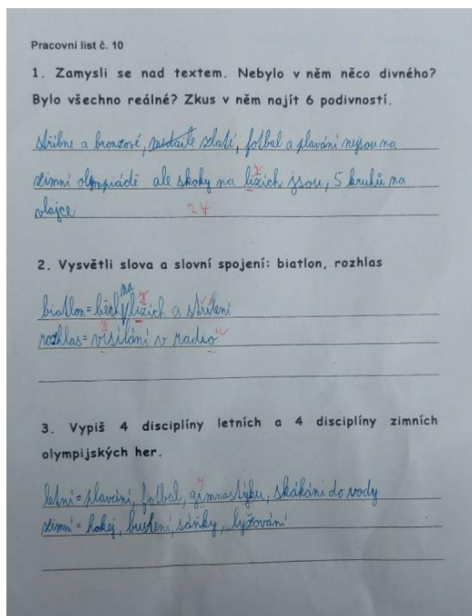 Pracovní list č. 10
1. Zamysli se nad textem. Nebylo v něm něco divného?
Bylo všechno reálné? Zkus v něm najít 6 podivností.
stříbrne a bronzové, zlaté, fotbal a plavání nejsou na
zimní olmpiádě ale skoky na ližich jsou, 5 kruhů na
vlajce
2. Vysvětli slova a slovní spojení: biatlon, rozhlas
biatlon=běh na ližich a střílení
rozhlas= visílání v radio
3. Vypiš 4 disciplíny letních a 4 disciplíny zimních
olympijských her.
letní=plavání, fotbal, gimnastyku, skákání do vody
zimní=hokej, sáňky, lyžování